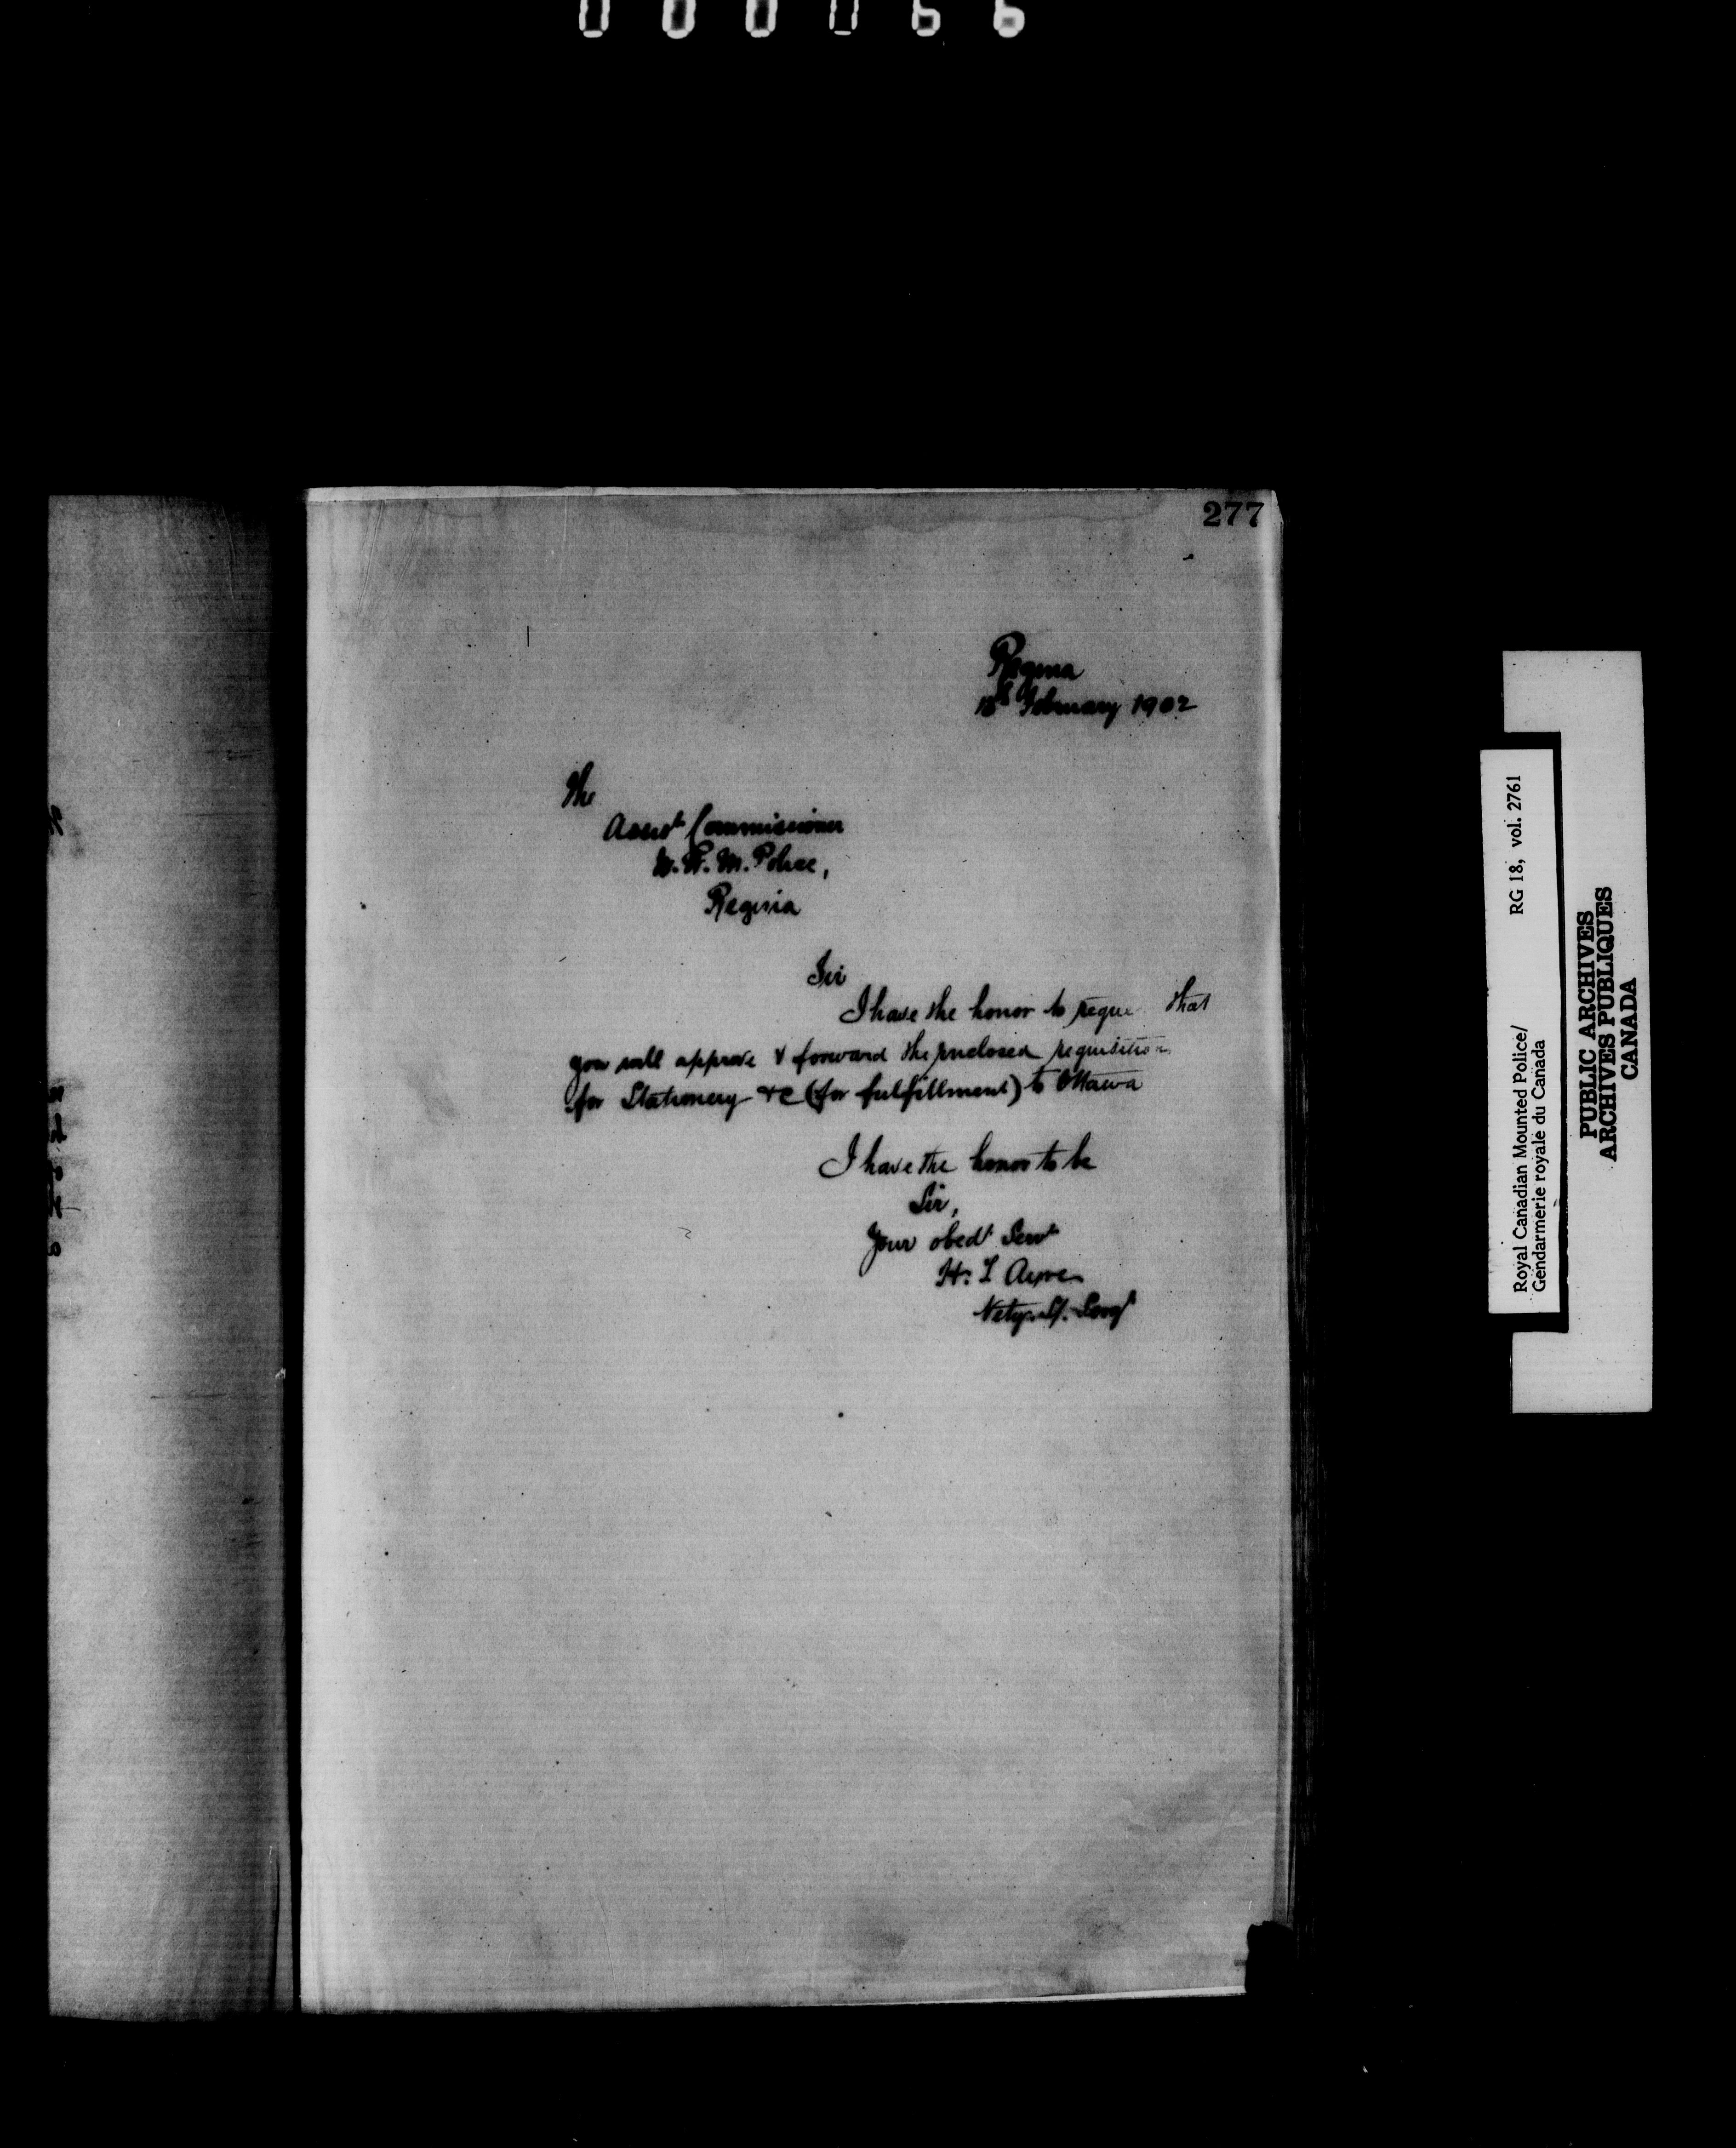 000066
277
Regina
18th February 1902
The
Assist Commissioner
N. W. M. Police,
Regina
Sir
I have the honor to reque that
you will approve & forward the enclosed requisition
for Stationery &c (for fulfillment) to Ottawa
I have the honor to be
Sir,
Your obedt Servt
H. T Ayre
Vety. S/. Sergt
Royal Canadian Mounted Police/ RG 18, vol. 2761
Gendarmerie royale du Canada
PUBLIC ARCHIVES
ARCHIVES PUBLIQUES
CANADA